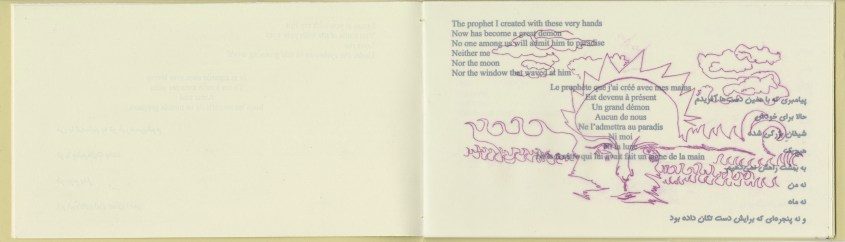 The prophet I created with these very hands
Now has become a great demon
No one among us will admit him to paradise
Neither me
Nor the moon
Nor the window that waved at him
Le prophète que j'ai créé avec mes mains
Est devenu à présent
Un grand démon
Aucun de nous
Ne l'admettra au paradis
Ni moi
Ni la lune
Ni la fenêtre qui lui avait fait un signe de la main
پیامبری که با همین دست‌ها آفریدم
حالا برای خودش
شیطان بزرگی شده
هیچ‌یک
به بهشت راهش نمی‌دهیم
نه من
نه ماه
و نه پنجره‌ای که برایش دست تکان داده بود